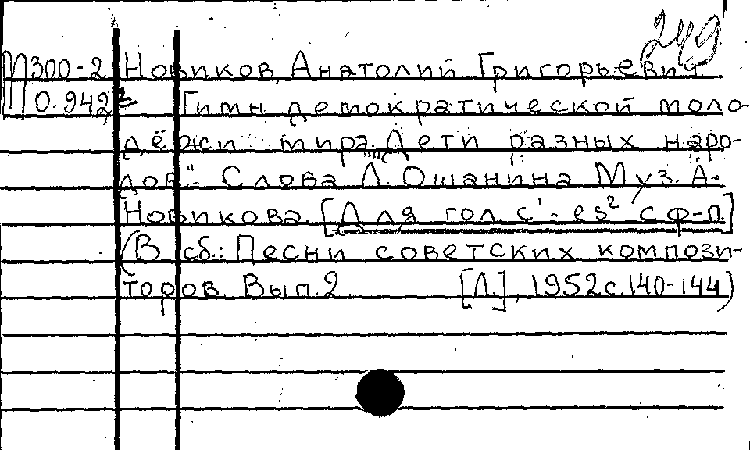 249
М300-2 Новиков, Анатолий Григорьевич
П0.942 Гимн демократической моло-
дёжи мира "Дети разных наро-
дов". Слова Л. Ошанина Муз. А.
Новикова. [Для гол. c¹-es² с ф-п.]
(В сб.: Песни советских компози-
торов. Вып. 2 [Л.], 1952 с. 140-144)